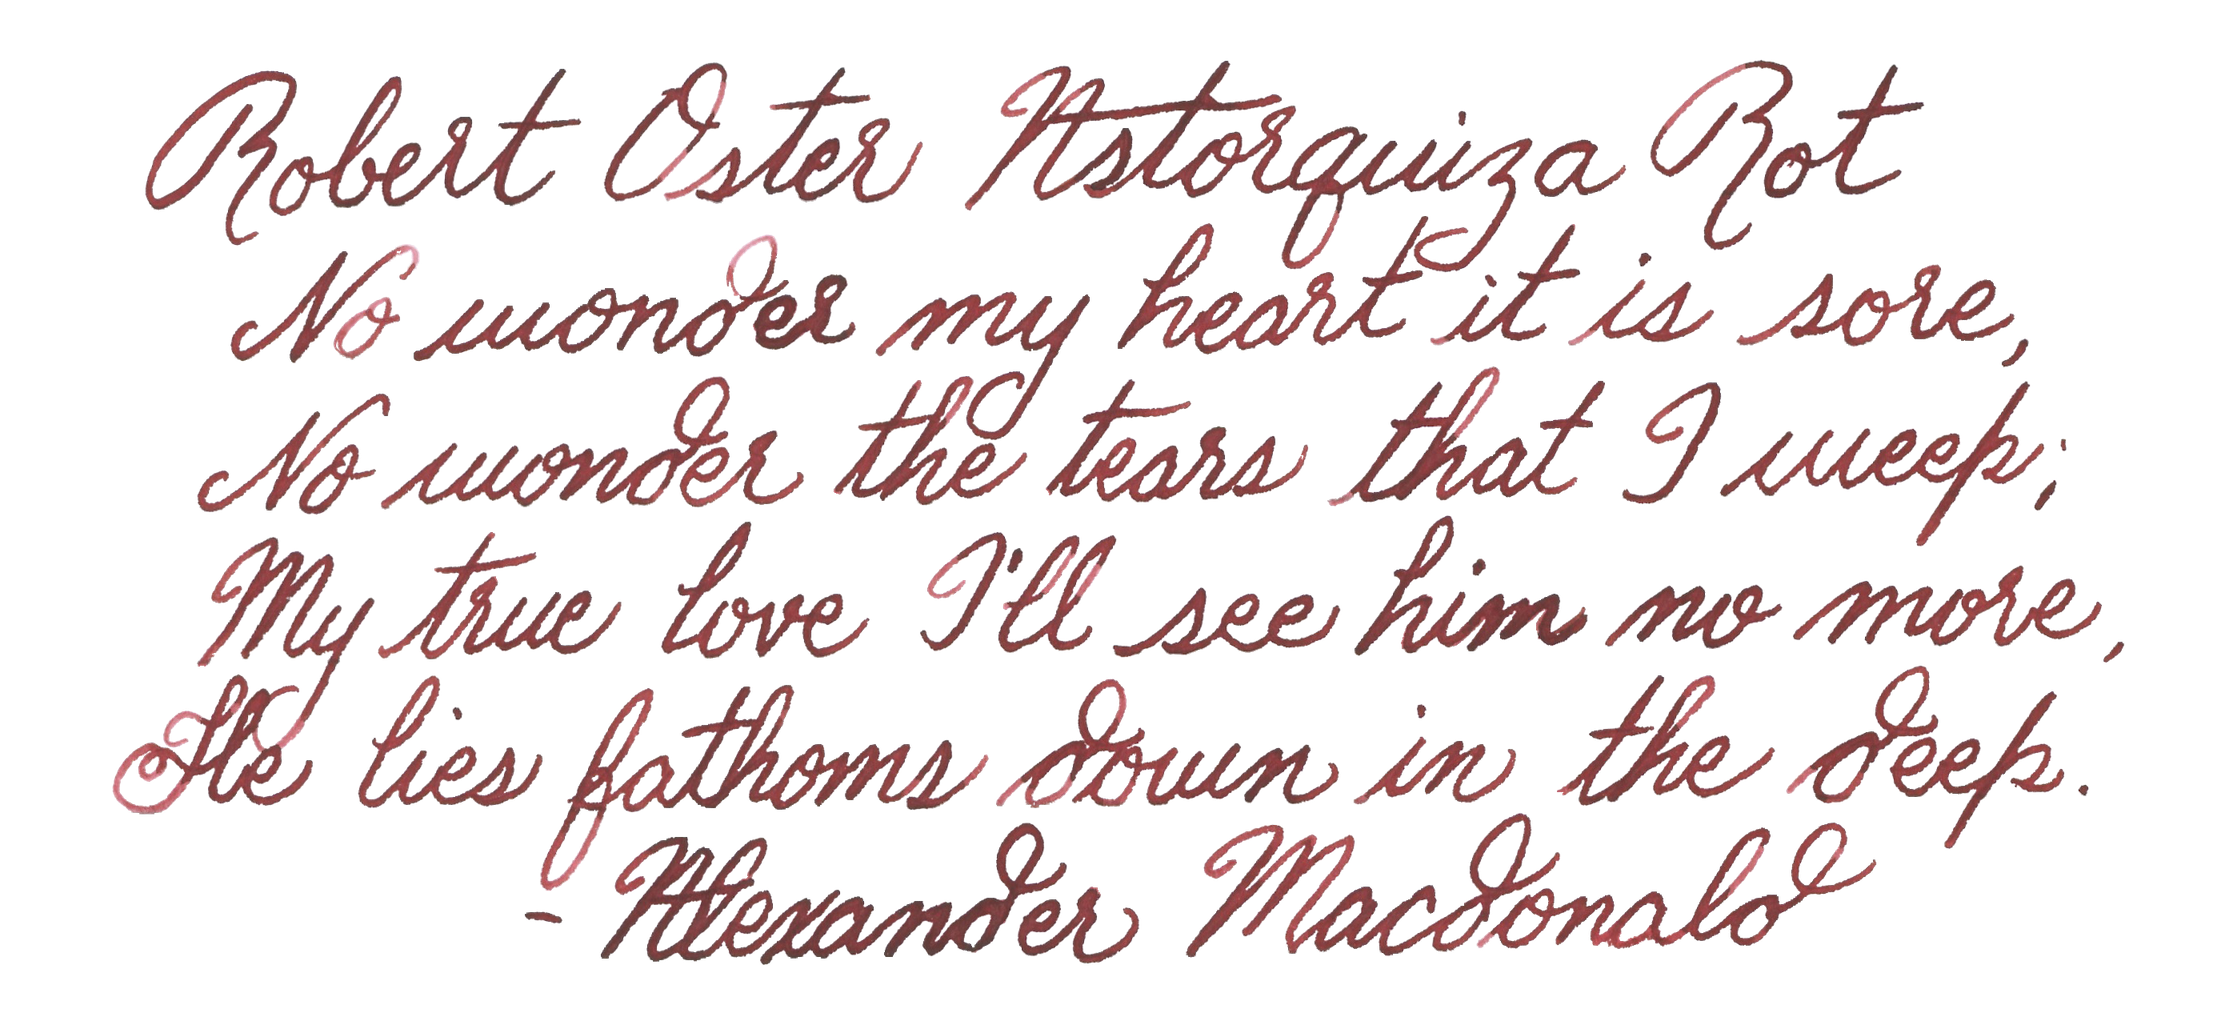 Robert Oster Astorquiza Rot
No wonder my heart it is sore,
No wonder the tears that I weep;
My true love I'll see him no more,
He lies fathoms down in the deep.
- Alexander Macdonald